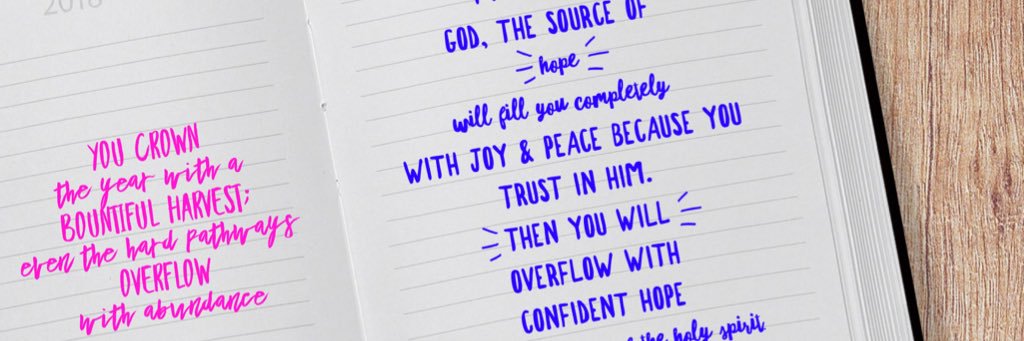 2018
YOU CROWN
the year with a
BOUNTIFUL HARVEST;
even the hard pathways
OVERFLOW
with abundance
GOD, THE SOURCE OF
hope
will fill you completely
WITH JOY & PEACE BECAUSE YOU
TRUST IN HIM.
THEN YOU WILL
OVERFLOW WITH
CONFIDENT HOPE
the holy spirit